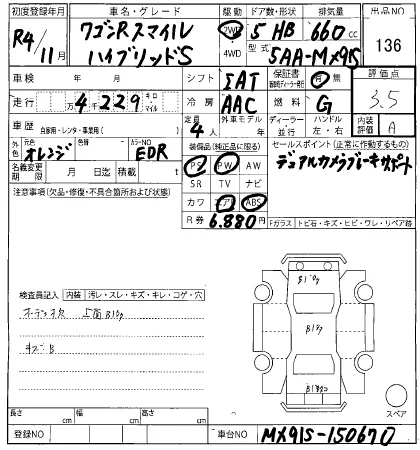 初度登録年月 車名・グレード 駆動 ドア数・形状 排気量 出品NO
R4/11月 ワゴンRスマイル ハイブリッドS 2WD 4WD 5 HB 660 cc 136
型式 5AA-MX91S
車検 年 月 シフト IAT 保証書 有 無 評価点
走行 万 4千229 キロ・マイル 冷房 AAC 燃料 G 3.5
車歴 自家用・レンタ・事業用( ) 定員 4人 外車モデル 年 ディーラー・並行 ハンドル 左・右 内装評価 A
外色 元色 オレンジ 色替 カラーNO EDR 装備品(純正品に限る) セールスポイント(正常に作動するもの)
名義変更期限 月 日迄 積載 t PS PW AW デュアルカメラブレーキサポート
注意事項(欠品・修復・不具合箇所および状態) SR TV ナビ
カワ エアB ABS
R券 6.880円 Fガラス トビ石・キズ・ヒビ・ワレ・リペア跡
検査員記入 内装 汚レ・スレ・キズ・キレ・コゲ・穴
オーディオ欠
キズB
長さ cm 幅 cm 高さ cm スペア
登録NO 車台NO MX91S-150670